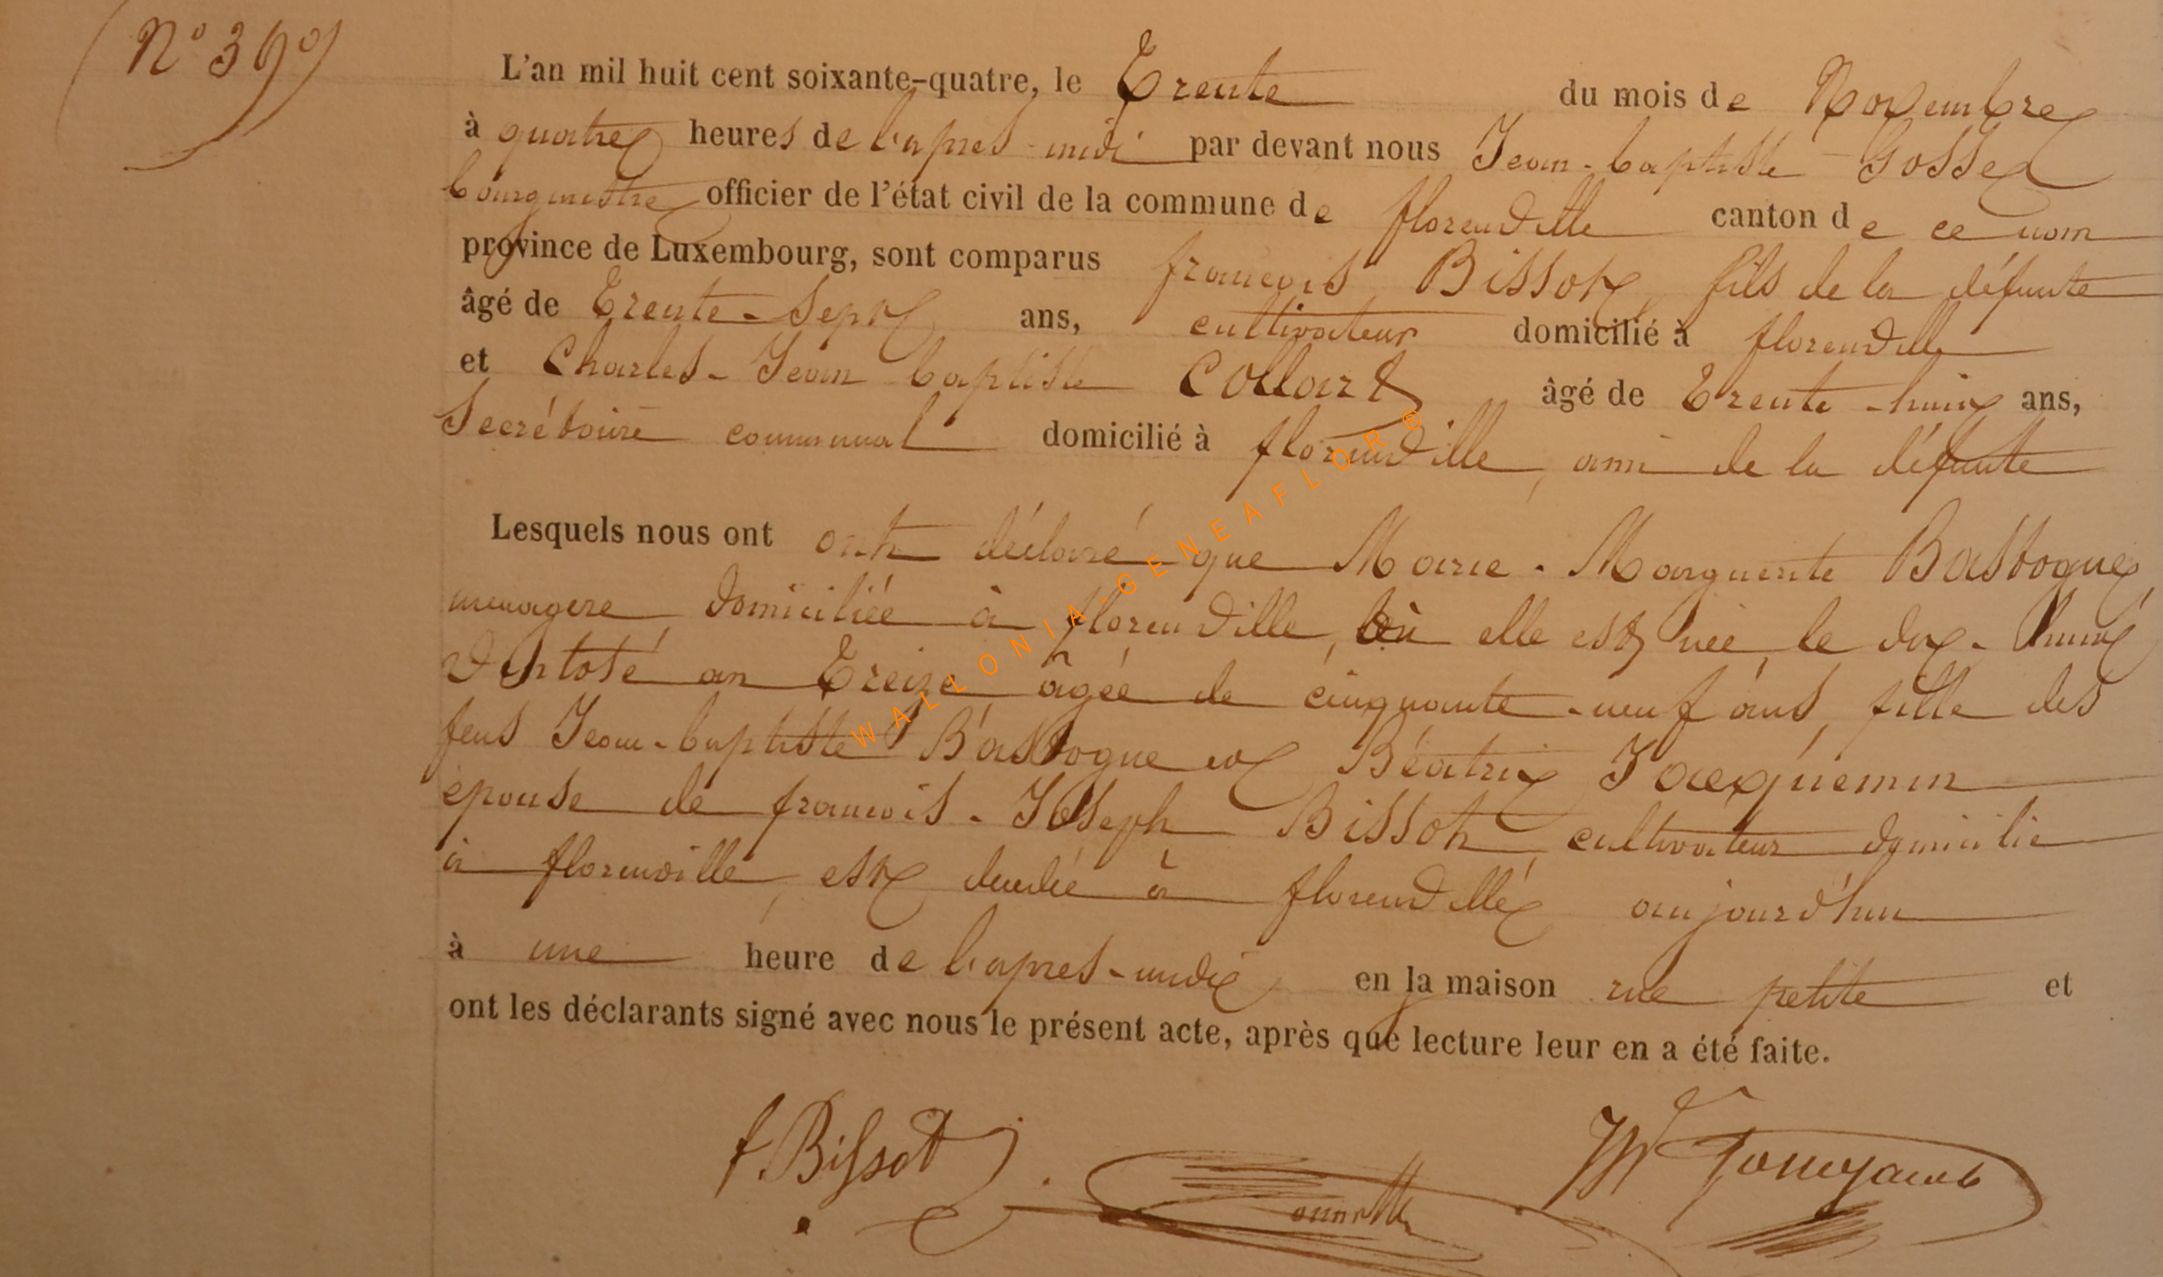 N° 39
L'an mil huit cent soixante-quatre, le Trente du mois de Novembre
à quatre heures de l'apres-midi par devant nous Jean-baptiste Gosse
bourgmestre officier de l'état civil de la commune de florenville canton de ce nom
province de Luxembourg, sont comparus francois Bissot, fils de la défunte
âgé de Trente-Sept ans, cultivateur domicilié à florenville
et Charles-Jean baptiste Collart âgé de Trente-huit ans,
Secrétaire communal domicilié à florenville, ami de la défunte
Lesquels nous ont ont déclaré que Marie-Marguerite Bastogne
menagere domiciliée à florenville, où elle est née le dix-huit
Ventosé an Treize âgée de cinquante-neuf ans, fille des
feus Jean-baptiste Bastogne et Béatrix Jacquemin
épouse de francois-Joseph Bissot cultivateur domicilié
à florenville, est decedée à florenville aujourd'hui
à une heure de l'apres-midi en la maison rue petite et
ont les déclarants signé avec nous le présent acte, après que lecture leur en a été faite.
f. Bissot
WALLONIA-GENEAFLORE